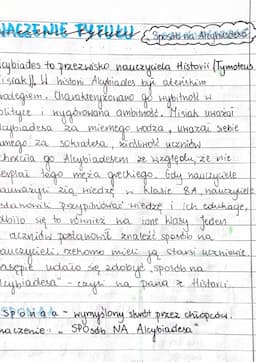 NACZENIE TYTUŁU
Sposób na Alcybiadesa
lcybiades to przezwisko nauczyciela Historii (Tymoteusz
isiak). W historii Alcybiades był ateńskim
rategiem. Charakteryzowano go wybitność w
olityce i wygórowana ambitność. Misiak uważał
lcybiadesa za miernego wodza, uważał siebie
mego za sokratesa, złośliwość uczniów
chrciła go Alcybiadesem ze względu, że nie
erpiał tego męża greckiego. Gdy nauczyciele
auważyli złą wiedzę w klasie 8A, nauczyciele
stanowili przypilnować wiedzę i ich edukację,
dbiło się to również na inne klasy. Jeden
uczniów postanowił znaleźć sposób na
auczycieli, rzekomo mieli ją starsi uczniowie.
astępnie udało się zdobyć „sposób na
lcybiadesa" - czyli na pana z Historii.
SPONAA - wymyślony skrót przez chłopców.
naczenie: „SPOsób NA Alcybiadesa"